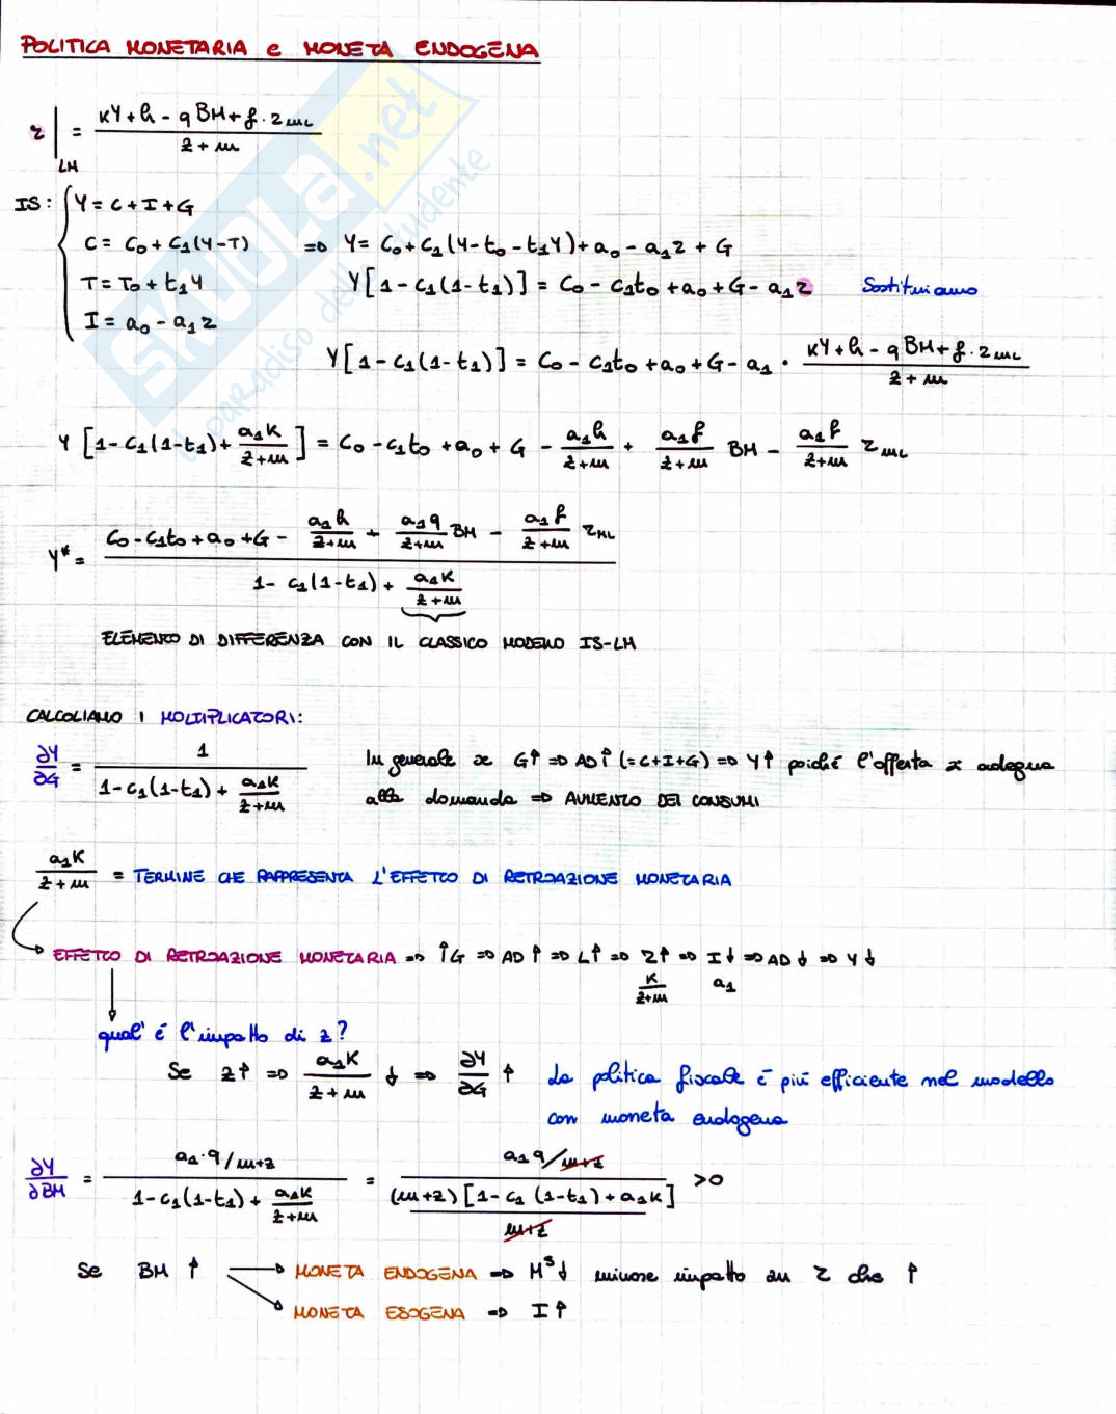 POLITICA MONETARIA e MONETA ENDOGENA
r|LM = (kY + h - qBM + f · rML) / (z + m)
IS: { Y = C + I + G
C = C0 + C1(Y-T) ⇒ Y = C0 + C1(Y - t0 - t1Y) + a0 - a1r + G
T = T0 + t1Y Y[1 - C1(1-t1)] = C0 - C1t0 + a0 + G - a1r Sostituiamo
I = a0 - a1r
Y[1 - C1(1-t1)] = C0 - C1t0 + a0 + G - a1 · (kY + h - qBM + f · rML) / (z + m)
Y [1 - C1(1-t1) + a1k/(z+m)] = C0 - C1t0 + a0 + G - a1h/(z+m) + a1f/(z+m) BM - a1f/(z+m) rML
Y* = (C0 - C1t0 + a0 + G - a1h/(z+m) + a1q/(z+m) BM - a1f/(z+m) rML) / (1 - C1(1-t1) + a1k/(z+m))
ELEMENTO DI DIFFERENZA CON IL CLASSICO MODELLO IS-LM
CALCOLIAMO I MOLTIPLICATORI:
∂Y/∂G = 1 / (1 - C1(1-t1) + a1k/(z+m)) In generale se G↑ ⇒ AD↑ (=C+I+G) ⇒ Y↑ poiché l'offerta si adegua
alla domanda ⇒ AUMENTO DEI CONSUMI
a1k/(z+m) = TERMINE CHE RAPPRESENTA L'EFFETTO DI RETROAZIONE MONETARIA
EFFETTO DI RETROAZIONE MONETARIA ⇒ ↑G ⇒ AD↑ ⇒ L↑ ⇒ r↑ ⇒ I↓ ⇒ AD↓ ⇒ Y↓
k/(z+m) a1
qual'è l'impatto di z?
Se z↑ ⇒ a1k/(z+m) ↓ ⇒ ∂Y/∂G ↑ La politica fiscale è più efficiente nel modello
con moneta endogena
∂Y/∂BM = (a1·q/m+z) / (1 - C1(1-t1) + a1k/(z+m)) = (a1q/m+z) / ((m+z)[1 - C1(1-t1) + a1k] / m+z) >0
Se BM ↑ → MONETA ENDOGENA ⇒ M^S↓ minore impatto su r che ↑
→ MONETA ESOGENA ⇒ I↑
SKUOLA.net
il paradiso dello studente